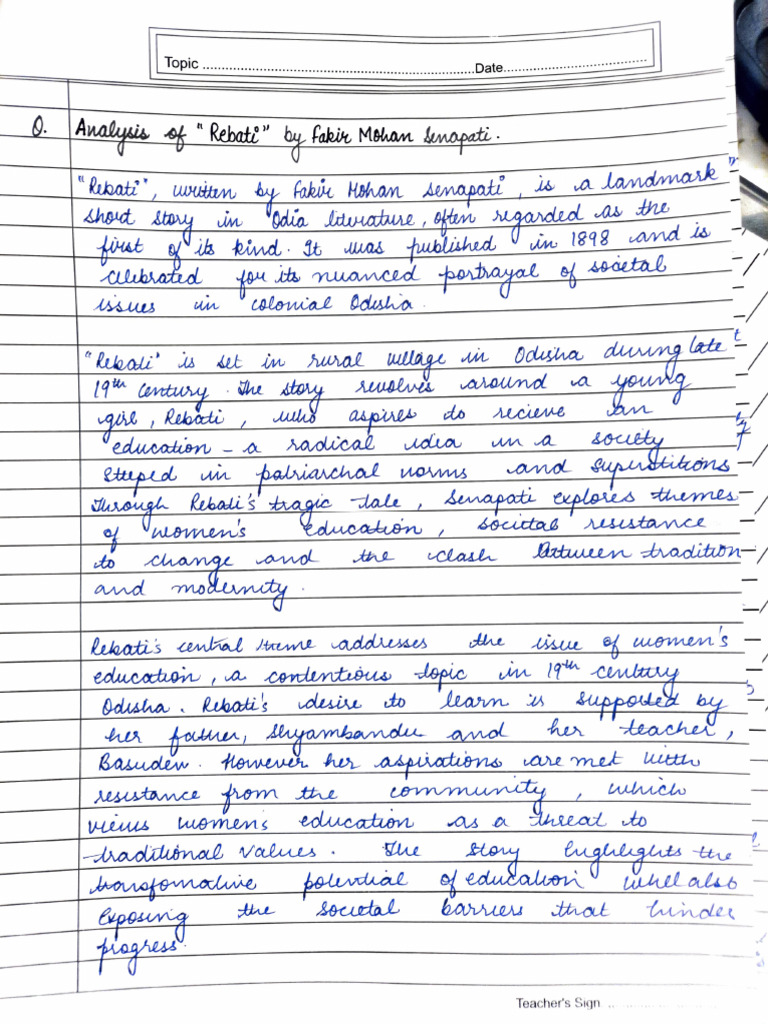 Topic ........................................ Date........................
Q. Analysis of "Rebati" by Fakir Mohan Senapati.
"Rebati", written by Fakir Mohan Senapati, is a landmark
short story in Odia literature, often regarded as the
first of its kind. It was published in 1898 and is
celebrated for its nuanced portrayal of societal
issues in colonial Odisha.
"Rebati" is set in rural village in Odisha during late
19th century. The story revolves around a young
girl, Rebati, who aspires do recieve an
education – a radical idea in a society
steeped in patriarchal norms and superstitions
Through Rebati's tragic tale, Senapati explores themes
of women's education, societal resistance
to change and the clash between tradition
and modernity.
Rebati's central theme addresses the issue of women's
education, a contentious topic in 19th century
Odisha. Rebati's desire to learn is supported by
her father, Shyambandu and her teacher,
Basudev. However her aspirations are met with
resistance from the community, which
views women's education as a threat to
traditional values. The story highlights the
transfomative potential of education whel also
exposing the societal barriers that hinder
progress.
Teacher's Sign ....................